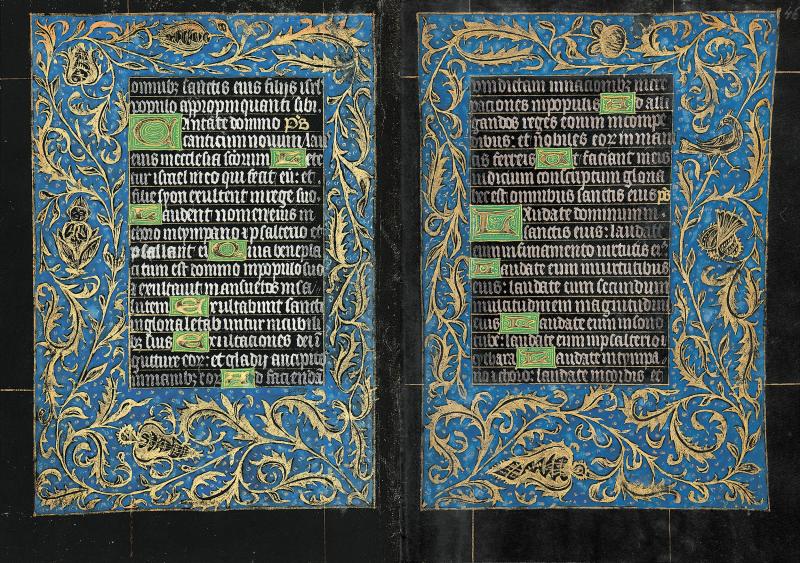 omnibꝫ sanctis eius filijs isrł
populo appropinquanti sibi.
Cantate domino ps
canticum nouum lau
eius in ecclesia scorum Lete
tur israel in eo qui fecit eū: et
filie syon exultent in rege suo.
Laudent nomen eius in
choro in tympano ⁊ psalterio
psallant ei Quia benepla
citum est domino in populo suo
⁊ exaltauit mansuetos in sa
lutem Exultabunt sancti
in gloria letabuntur in cubilibꝫ
suis Exultaciones dei ī
gutture eoꝝ: et gladij ancipites
in manibꝫ eoꝝ Ad faciendā
vindictam in nacionibꝫ incre
paciones in populis Ad alli
gandos reges eorum in compe
dibus: et nobiles eoꝝ in mani
cis ferreis Ut faciant in eis
iudicium conscriptum gloria
hec est omnibus sanctis eius ps
Laudate dominum in
sanctis eius: laudate
in firmamento virtutis eiꝰ
Laudate eum in virtutibus
eius: laudate eum secundum
multitudinem magnitudinis
eius Laudate eum in sono
tube: laudate eum in psalterio ⁊
cythara Laudate in tympa
no ⁊ choro: laudate in cordis et
46